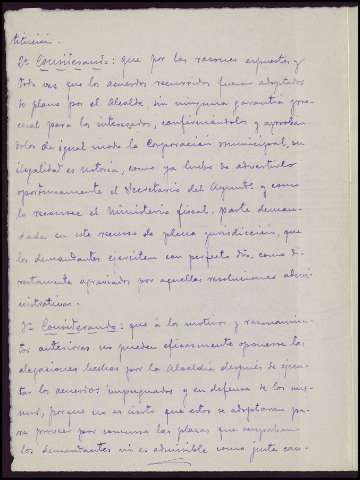 titución.
2º Considerando: que por las razones expuestas y
toda vez que los acuerdos recurridos fueron adoptados
de plano por el Alcalde sin ninguna garantía pro-
cesal para los interesados, confirmándolos y aproban-
dolos de igual modo la Corporación municipal, su
ilegalidad es notoria, como ya hubo de advertirlo
oportunamente el Secretario del Ayunto. y como
lo reconoce el Ministerio fiscal, parte deman-
dada en este recurso de plena jurisdicción, que
los demandantes ejercitan con perfecto dro. como di-
rectamente agraviados por aquellas resoluciones admi-
nistrativas.
3º Considerando: que á los motivos y razonamien-
tos anteriores no pueden eficazmente oponerse las
alegaciones hechas por la Alcaldía después de ejecu-
tar los acuerdos impugnados y en defensa de los mis-
mos, porque no es cierto que estos se adoptaran pa-
ra proveer por concurso las plazas que ocupaban
los demandantes ni es admisible como justa cau-